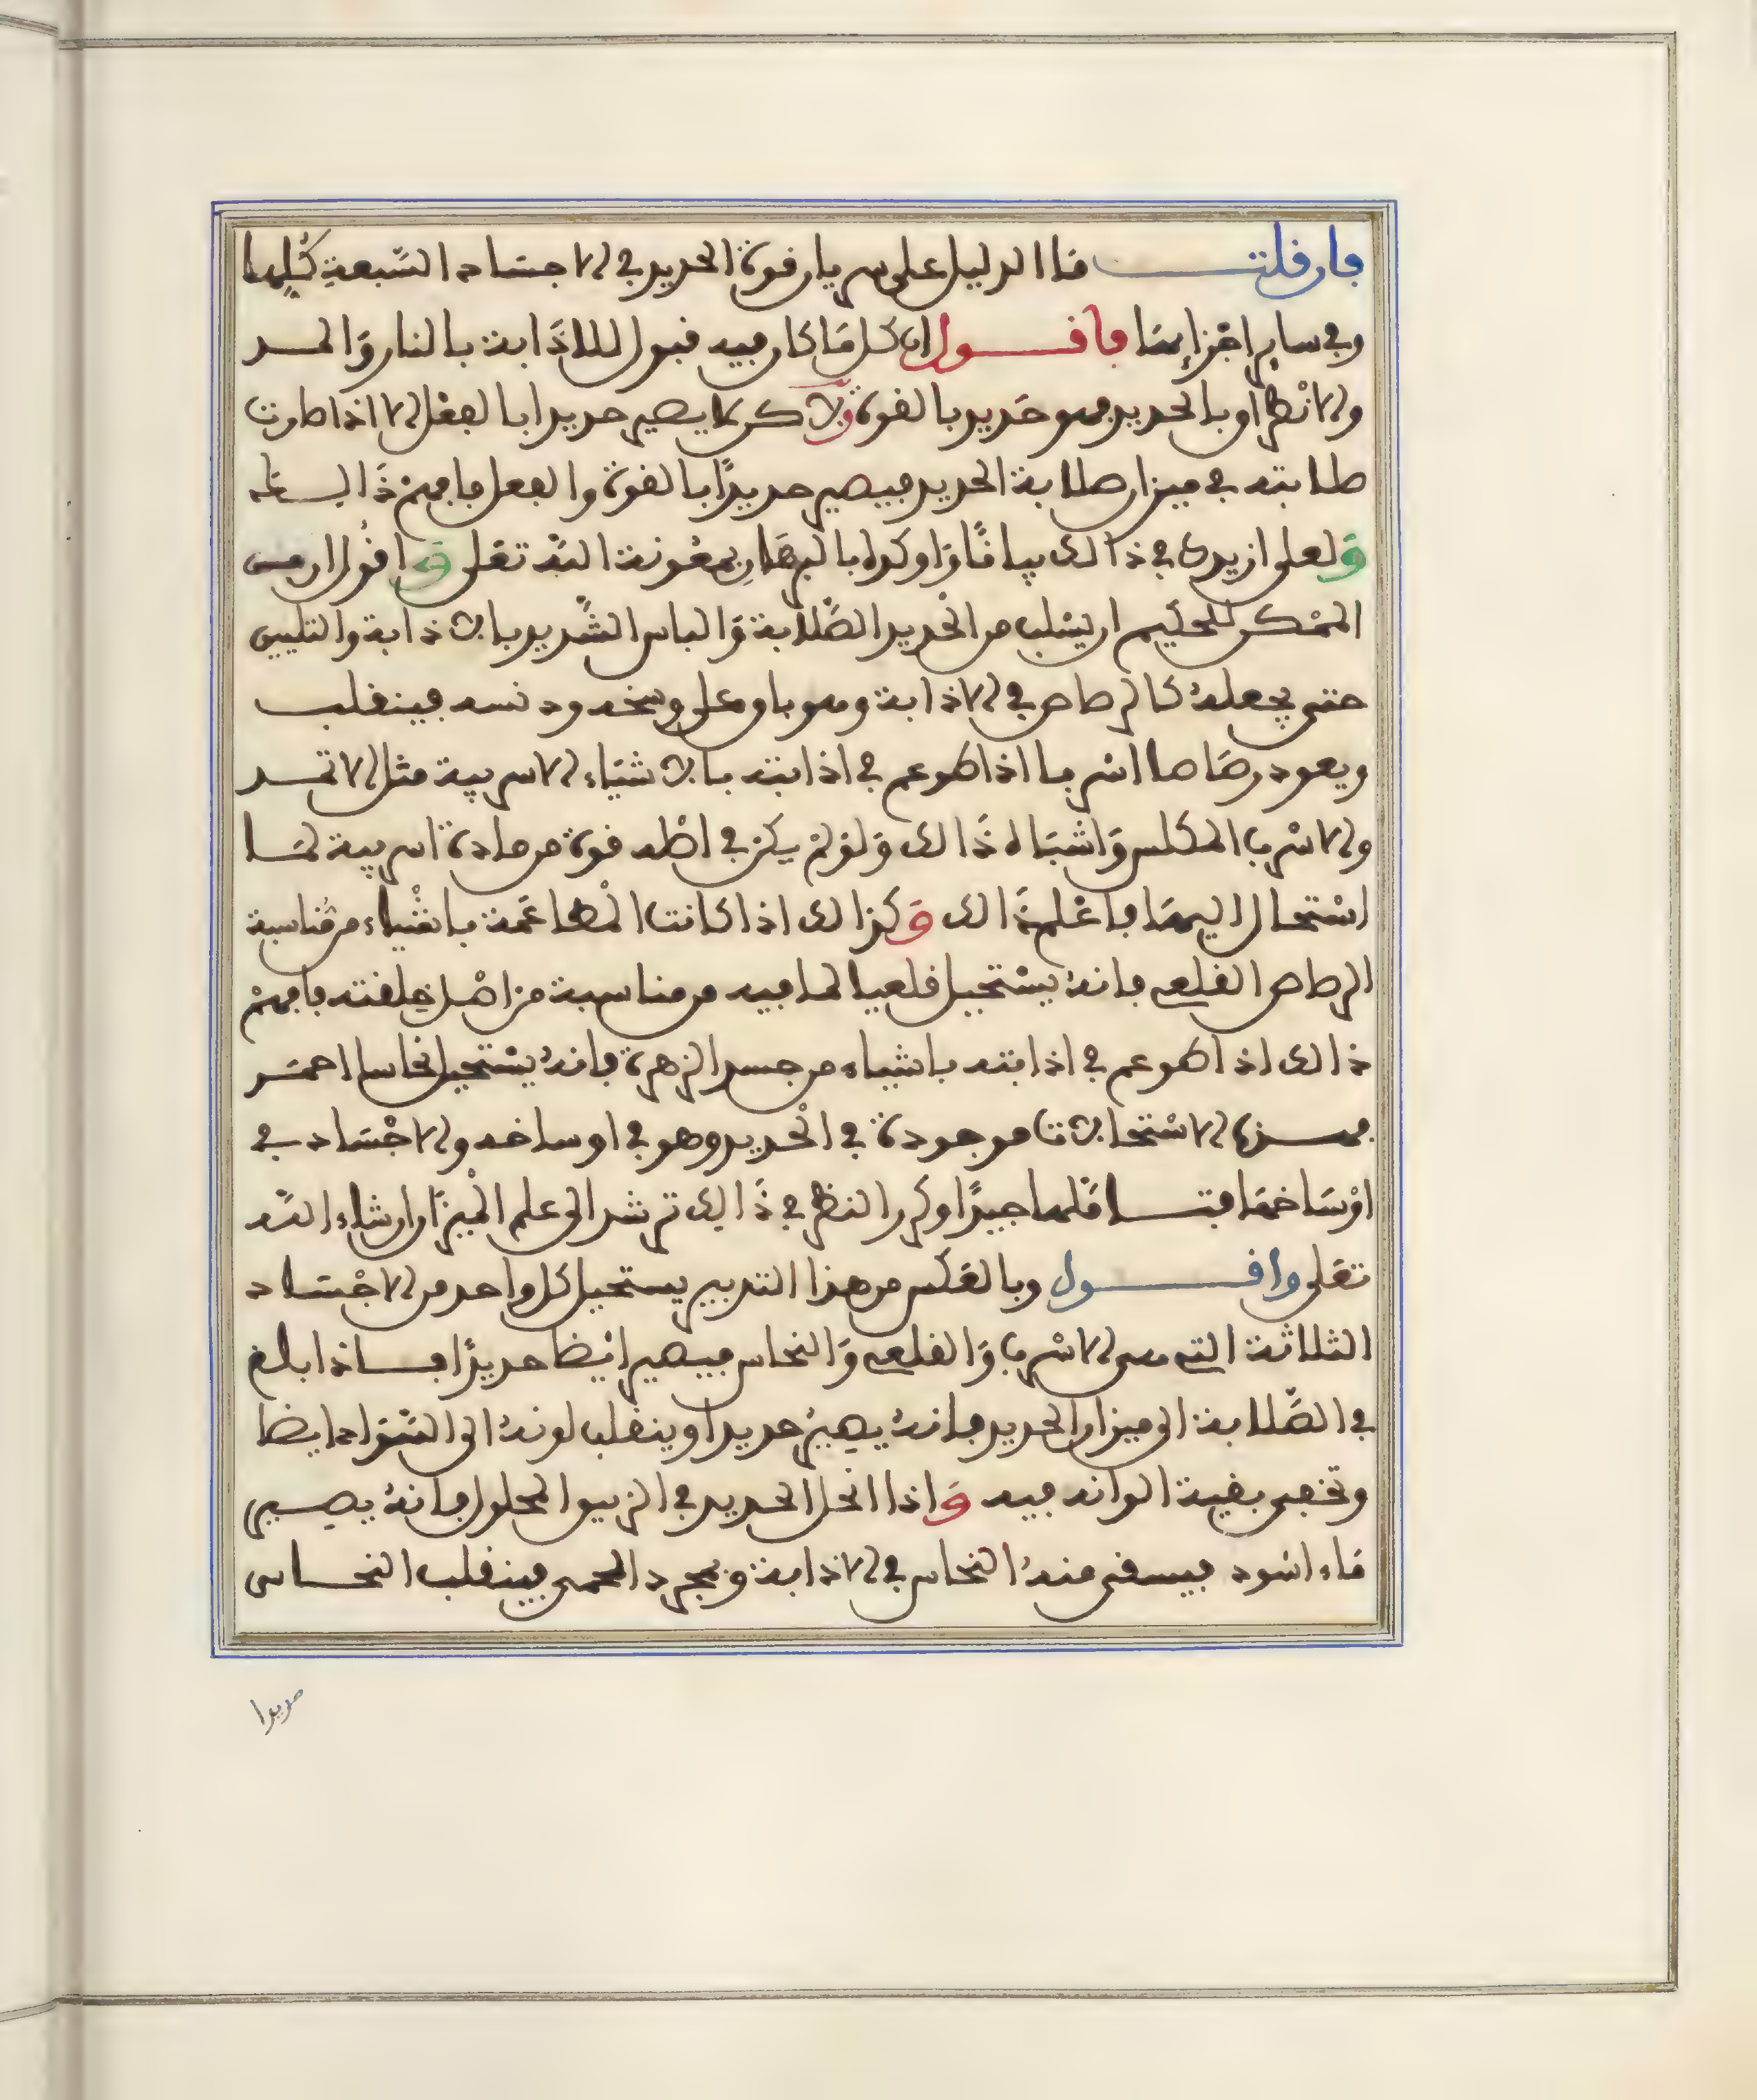 فإن قلت ما الدليل على سريان قوة الحديد في الاجساد السبعة كلها
وفي ساير اجزايها فأقول ان كل ما كان فيه قبول للاذابة بالنار والمد
والانطراق بالحديد فهو حديد بالقوة ولاكن لا يصير حديدا بالفعل الا اذا صارت
صلابته في ميزان صلابة الحديد فيصير حديدًا بالقوة والفعل فافهم ذالك
ولعلي ازيدك في ذالك بيانًا واوكده بالبرهان بمعونة الله تعلى واقول ان من
الممكن للحكيم ان يسلب من الحديد الصلابة والباس الشديد بالاذابة والتليين
حتى يجعله كالرصاص في الاذابة وهو باق على وسخه ودنسه فينقلب
ويعود رصاصا اسربا اذا طوعم في اذابته بالاشياء الاسربية مثل الاثمد
والاسرب المكلس واشباه ذالك ولو لم يكن في اصله قوة من مادة اسربية لما
استحال اليها فاعلم ذالك وكذالك اذا كانت المطاعمة باشياء من مناسبة
الرصاص القلعي فإنه يستحيل قلعيا لما فيه من مناسبة من اصل خلقته فافهم
ذالك اذا طوعم في اذابته باشياء من جسد الزهرة فإنه يستحيل نحاسا احمر
فهذه الاستحالات موجودة في الحديد وهو في اوساخه والاجساد في
اوساخها فتاملها جيدًا وكرر النظر في ذالك ترشد الى علم الميزان ان شاء الله
تعلى واقول وبالعكس من هذا التدبير يستحيل كل واحد من الاجساد
الثلاثة التي هي الاسرب والقلعي والنحاس فيصير ايضا حديدًا فاذا بلغ
في الصلابة الى ميزان الحديد فإنه يصير حديدا وينقلب لونه الى السواد ايضا
وتخفى بقية الوانه فيه واذا انحل الحديد في الزيبق المحلول فإنه يصير
ماء اسود فيسقى منه النحاس في الاذابة وبمجرد الحمي فينقلب النحاس
حديدا